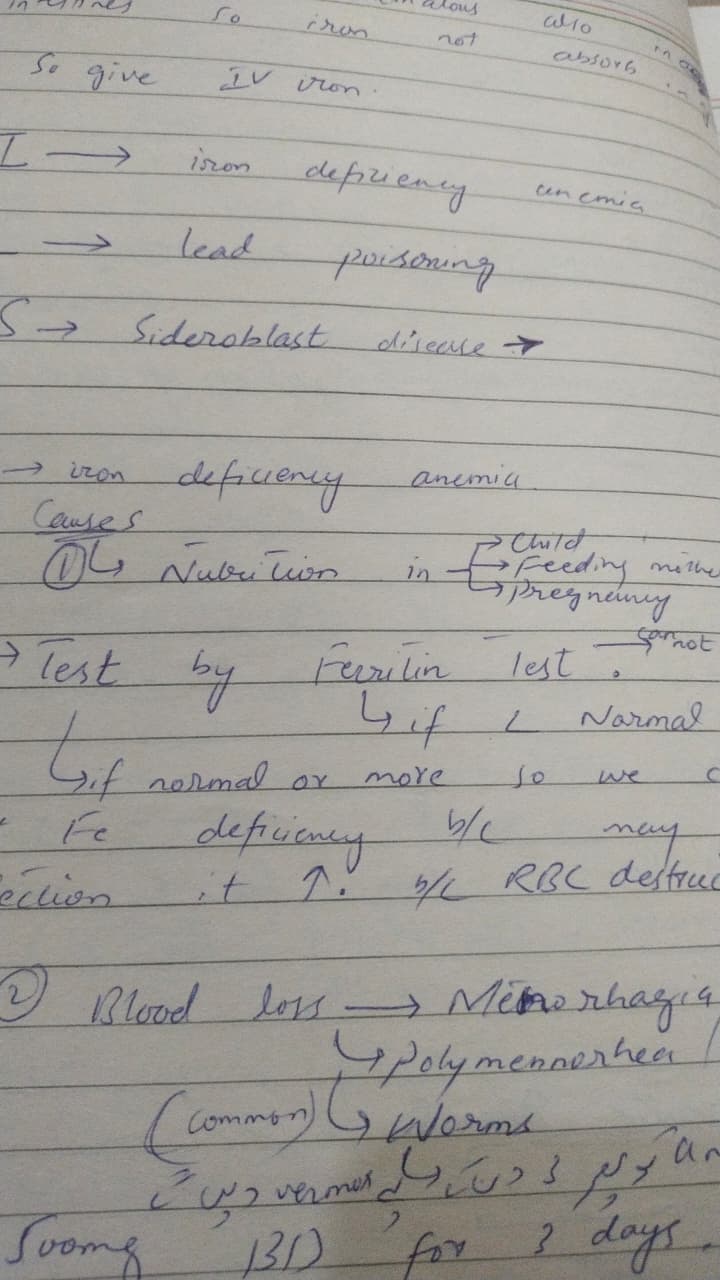 so iron not absorb in
So give IV iron.
I → iron deficiency anemia
→ lead poisoning
S → Sideroblast disease →
→ iron deficiency anemia
Causes
① ↳ Nutrition in → Child
→ Feeding
→ pregnancy
→ Test by Ferritin Test. → cannot
↳ if < Normal
↳ if normal or more so we
Fe deficiency b/c may
ection it ↑. b/c RBC destruc
② Blood loss → Menorhagia
↳ polymennorhea
(common) ↳ Worms
vermox
500mg BD for 3 days.